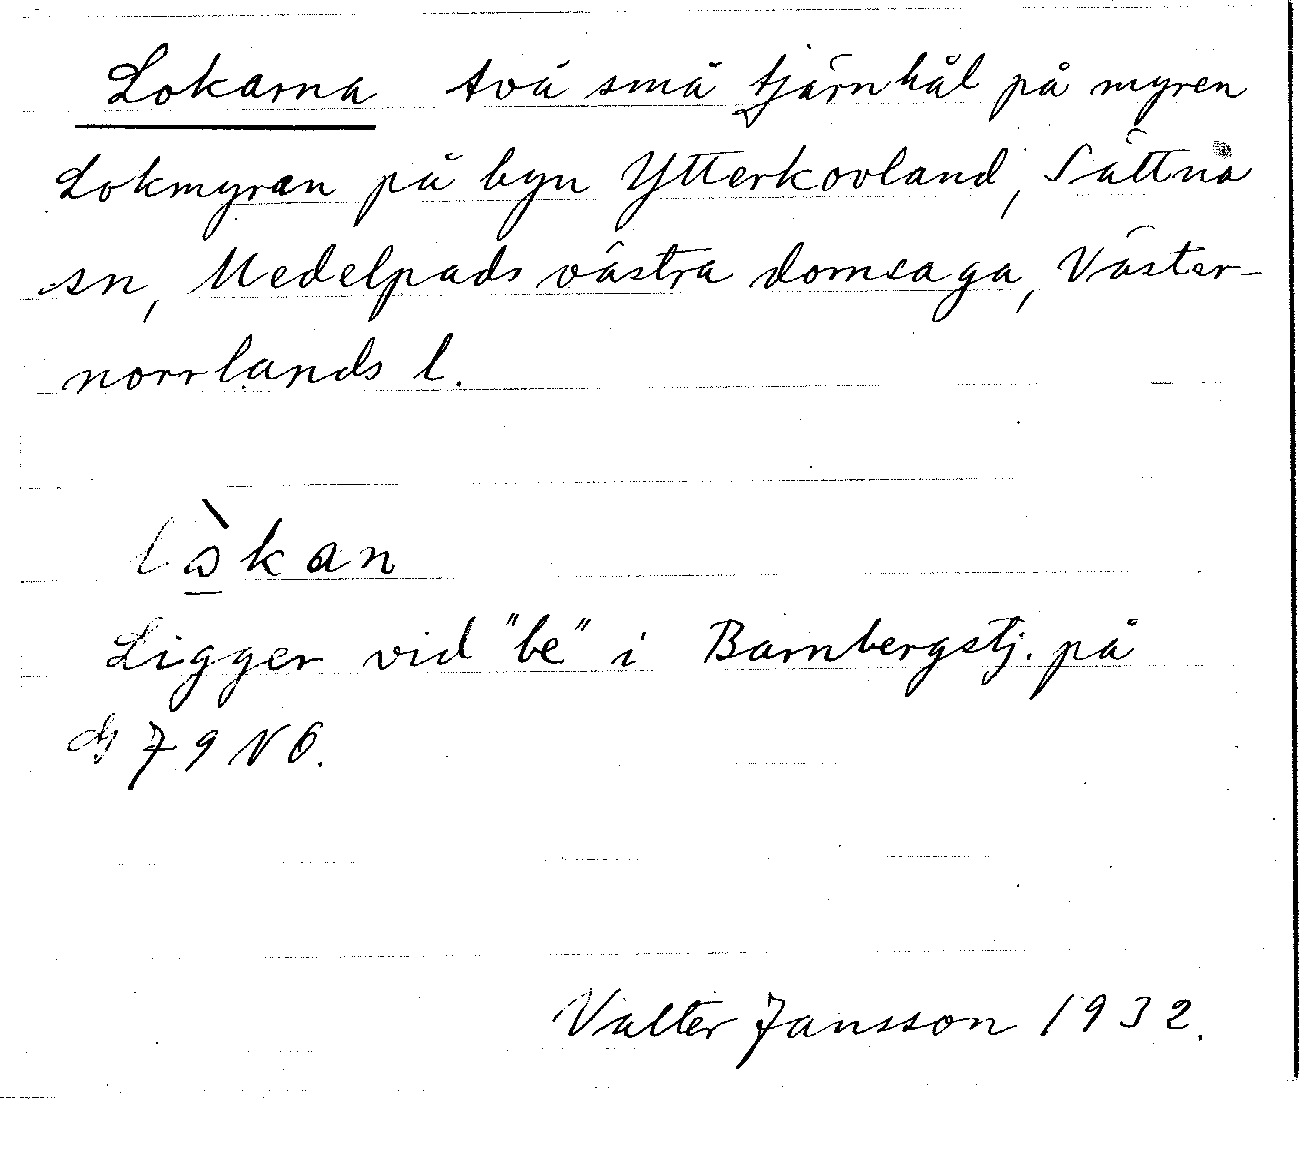 Lokarna två små tjärnhål på myren
Lokmyran på byn Ytterkovland, Sättna
sn, Medelpads västra domsaga, Väster-
norrlands l.
Ligger vid "be" i Barnbergstj. på
79 NO.
Valter Jansson 1932.